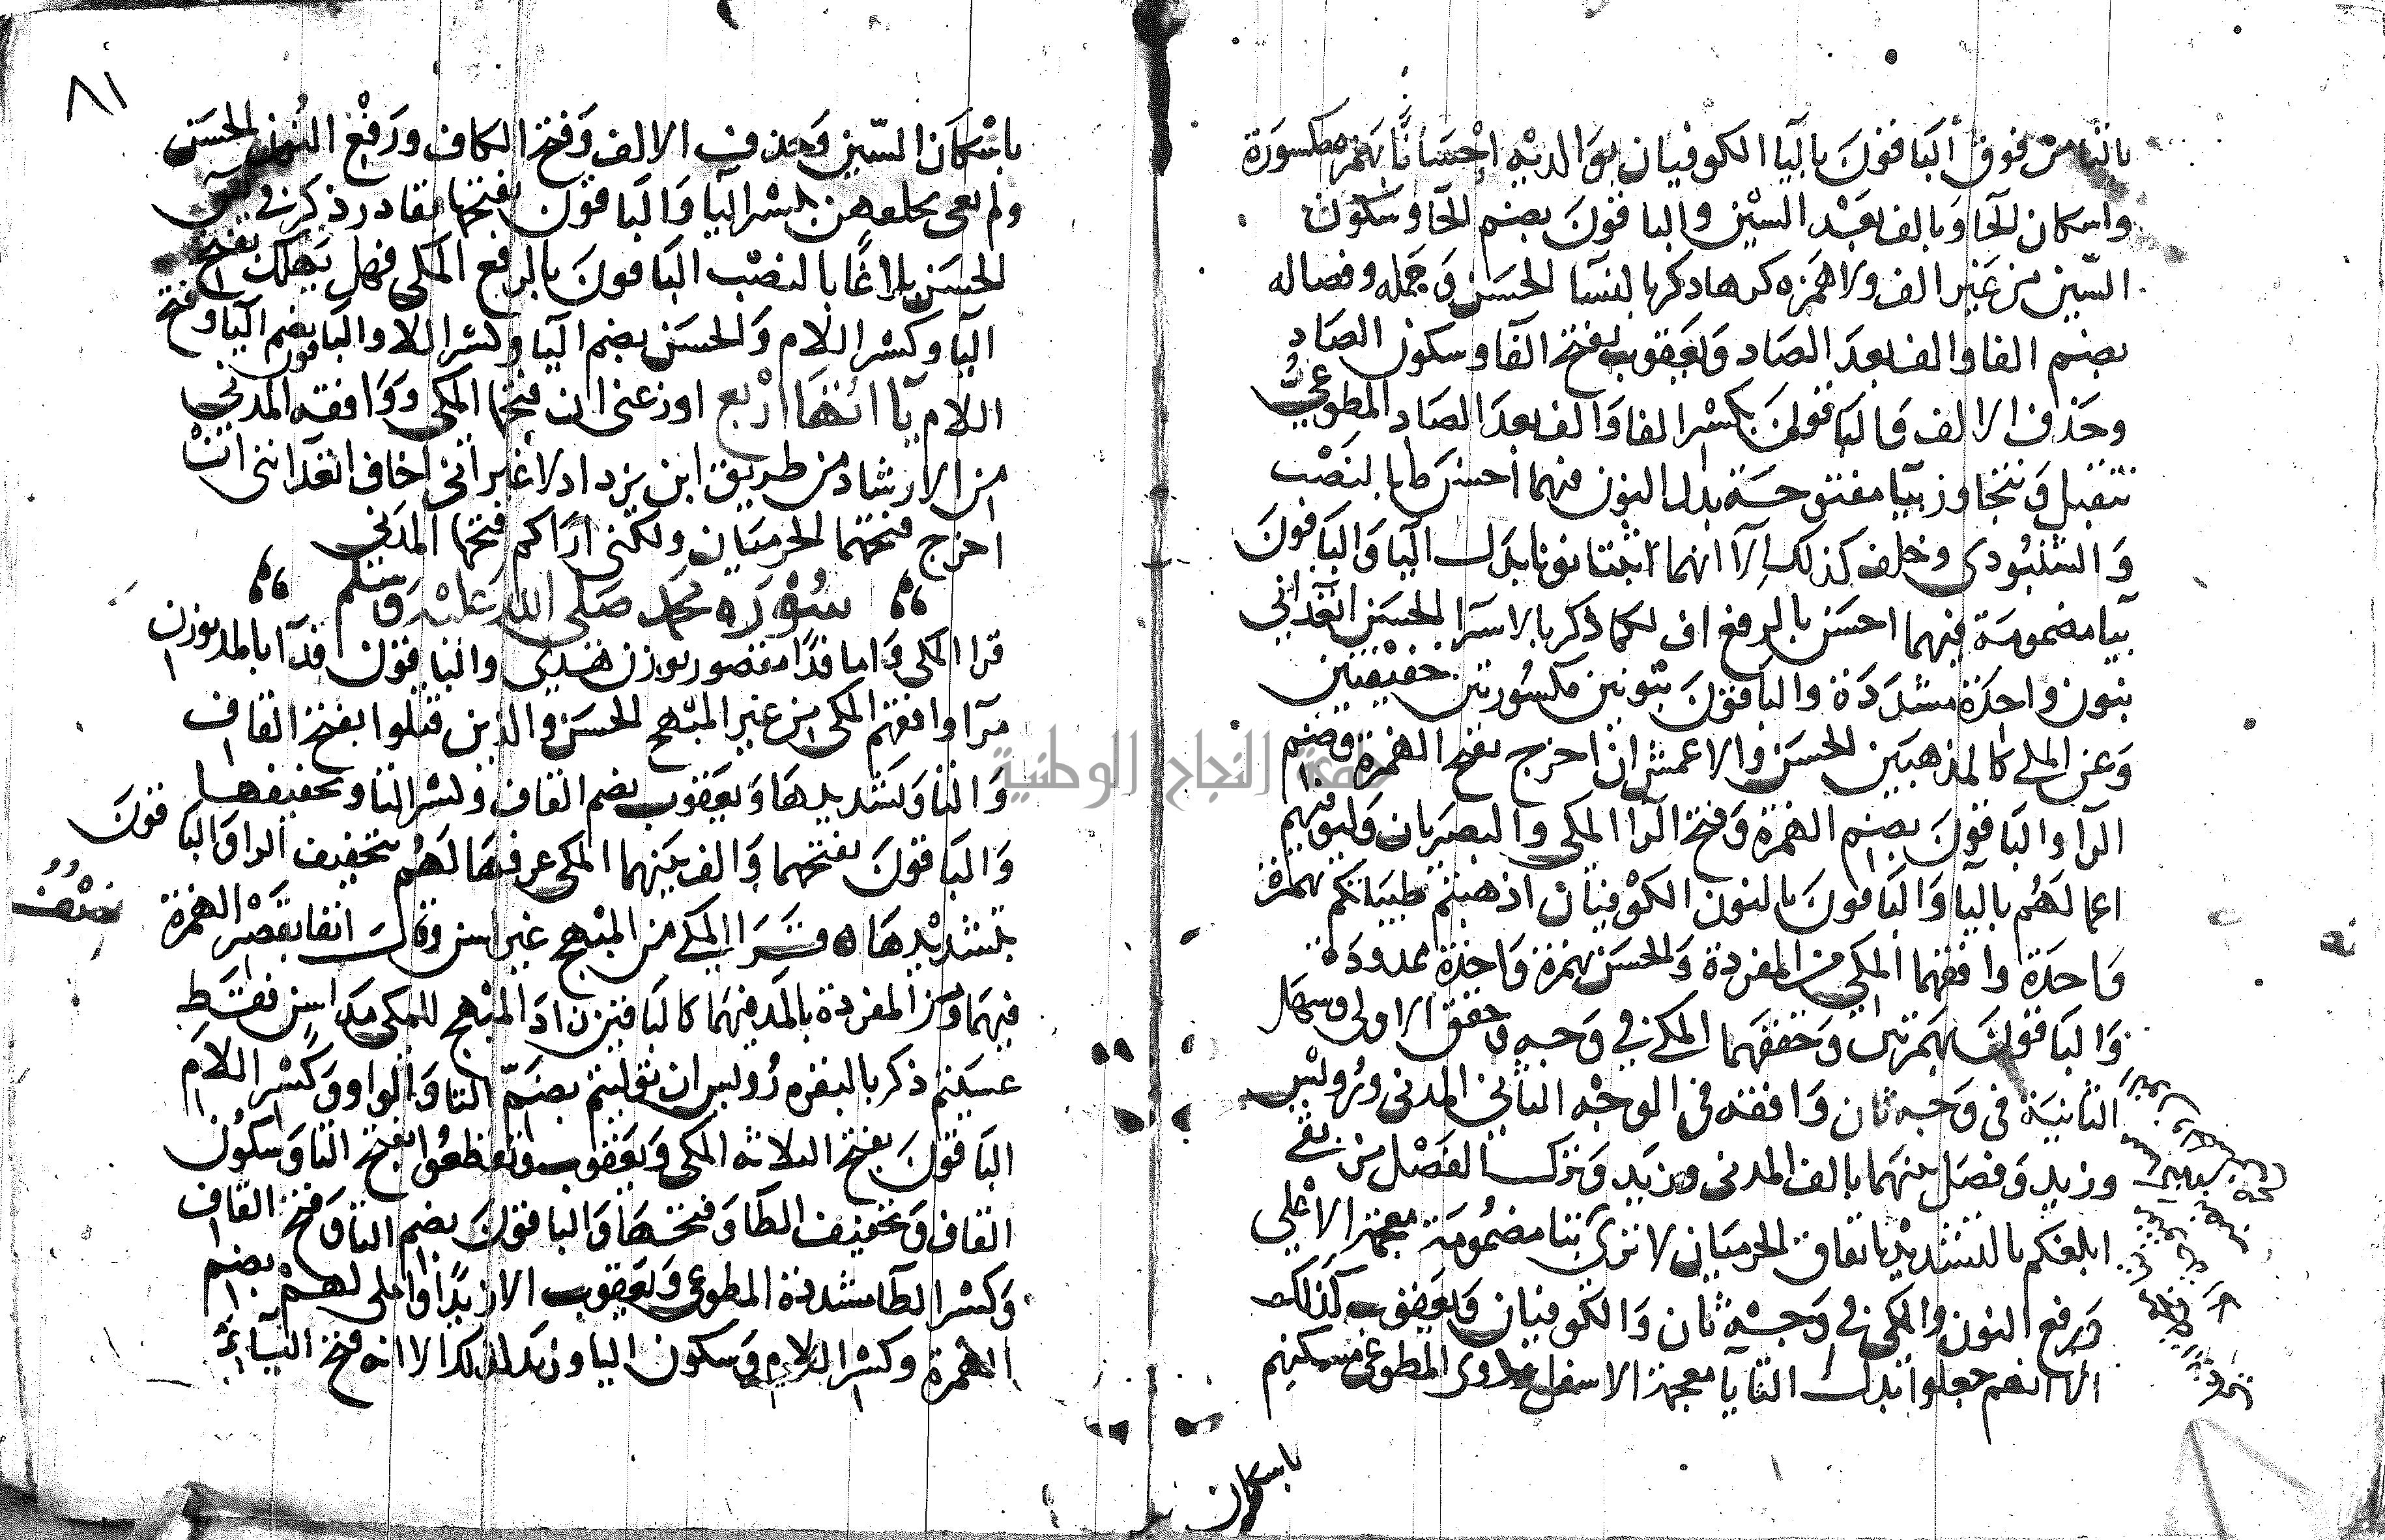 بالتا من فوق الباقون باليا الكوفيان بوالديه إحسانًا بهمزه مكسورة
واسكان الحا وبالف بعد السين والباقون بضم الحا وسكون
السّين من غير الف ولا همزه كرها ذكر بالنسا الحسن وحمله وفصاله
بضم الفا والف بعد الصاد ويعقوب بفتح الفا وسكون الصاد
وحذف الالف والباقون بكسر الفا والف بعد الصاد المطوعي
نتقبل ونتجاوز بيا مفتوحة بدل النون فيهما أحسن ما بالنصْب
والشنبُوذي وخلف كذلك إلّا انهما اثبتا نونا بدل اليا والباقون
بيا مضمومة فيهما احسن بالرفع اف لكما ذكر بالاسرا الحسن اتعدانني
بنون واحدة مشدّدة والباقون بنونين مكسُورتين خفيفتين
وعن المكي كالمذهبين الحسن والاعمش ان اخرج بفتح الهمزة وضم
الرآ والباقون بضم الهمزة وفتح الرا المكي والبصريان وليوفيهم
اعمالهُم باليا والباقون بالنون الكوفيان اذهبتم طيباتكم بهمزة
واحدة وافقهما المكي من المفردة والحسن بهمزة واحدة ممدودة
والباقون بهمزتين وحققهما المكي في وجه وحقق الاولى وسهل
الثانية في وجه ثان وافقه في الوجْه الثاني المدني ورُويْس
وزيد وفصل بينهما بالف المدني وزيد وترك الفصْل من بقي
ابلغكم بالتشديد باتفاق الحرميان لا ترى بتا مضمُومة معجمة الاعلي
ورفع النون والمكي في وجْه ثان والكوفيان ويعقوب كذلك
الا انهم جعلوا بدل التا يا معجمة الاسفل المطوعي مسكنهم
باسكان
٨١
باسْكان السّين وحذف الالف وفتح الكاف ورفع النُون الحسن
ولم يعي بخلقهن بكسْر اليا والباقون بفتحها بقادر ذكر في يس
الحسن بلاغًا بالنصْب الباقون بالرفع المكي فهل يهلك بفتح
اليا وكسْر اللام والحسن بضم اليا وكسْر اللا والباقون بضم اليا وفتح
اللام ياائتها اربع اوزعني ان فتحها المكي ووافقه المدني
من الارشاد من طريق ابن يزداد لا غير اني اخاف اتعدانني انْ
اخرج فتحهما الحرميان ولكني اراكم فتحها المدني
سُوْرة محمد صلى الله عليه وسلم
قرا المكي واما فدًا مقصور بوزن هدى والباقون فدآ بالمد بوزن
مرآ وافقهم المكي من غير المبهج الحسن والذين قتلوا بفتح القاف
والتا وتشديدها ويعقوب بضم القاف وكسْر التا وتخفيفها
والباقون بفتحهما والف بينهما المكي عرفها لهُم بتخفيف الرا والباقون
بتشديدها وقرا المكي من المبهج غير اسن وقال انفا بقصْر الهمزة
فيهما ومن المفردة بالمد فيهما كالباقين زاد المبهج للمكي مد اسن فقط
عسيتم ذكر بالبقره رُويس ان توليتم بضمّ التا والواو وكسْر اللام
الباقون بفتح الثلاثه المكي ويعقوب وتقطعُوا بفتح التا وسكُون
القاف وتخفيف الطا وفتحها والباقون بضم التا وفتح القاف
وكسْر الطا مشددة المطوعي ويعقوب الا زيدًا واملى لهمْ بضم
الهمزة وكسْر اللام وسكون اليا وزيد كذلك الا انه فتح اليآء
جامعة النجاح الوطنية